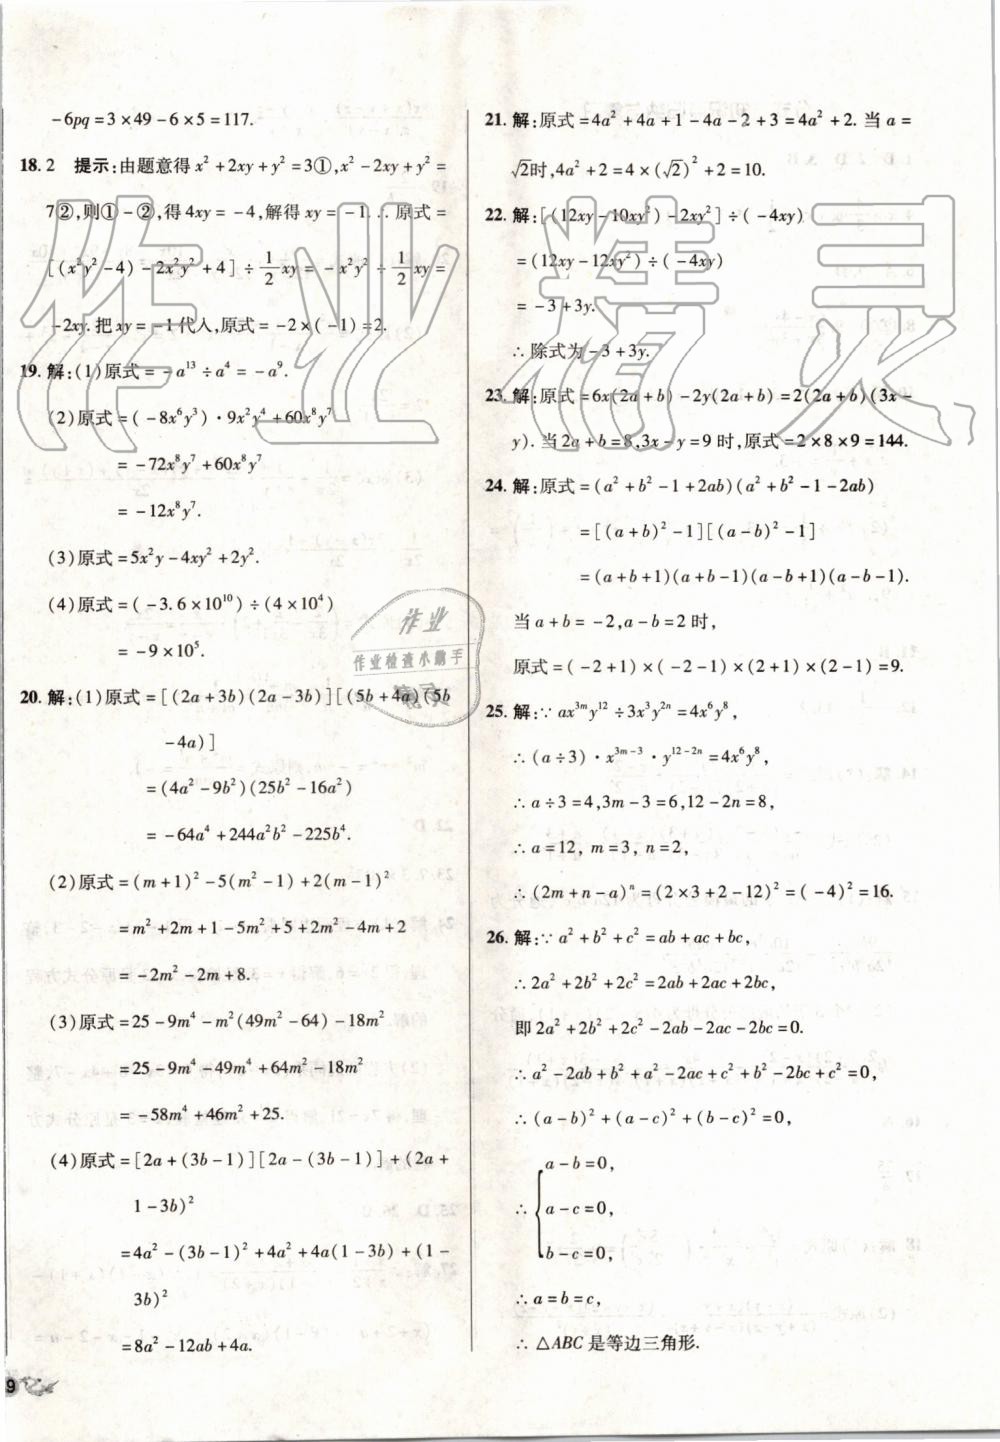 -6pq=3×49-6×5=117.
18. 2 提示:由题意得 x²+2xy+y²=3①,x²-2xy+y²=
7②,则①-②,得4xy=-4,解得xy=-1.∴原式=
[(x²y²-4)-2x²y²+4]÷1/2xy=-x²y²÷1/2xy=
-2xy.把xy=-1代人,原式=-2×(-1)=2.
19. 解:(1)原式=-a¹³÷a⁴=-a⁹.
(2)原式=(-8x⁶y³)·9x²y⁴+60x⁸y⁷
=-72x⁸y⁷+60x⁸y⁷
=-12x⁸y⁷.
(3)原式=5x²y-4xy²+2y².
(4)原式=(-3.6×10¹⁰)÷(4×10⁴)
=-9×10⁵.
20. 解:(1)原式=[(2a+3b)(2a-3b)][(5b+4a)(5b
-4a)]
=(4a²-9b²)(25b²-16a²)
=-64a⁴+244a²b²-225b⁴.
(2)原式=(m+1)²-5(m²-1)+2(m-1)²
=m²+2m+1-5m²+5+2m²-4m+2
=-2m²-2m+8.
(3)原式=25-9m⁴-m²(49m²-64)-18m²
=25-9m⁴-49m⁴+64m²-18m²
=-58m⁴+46m²+25.
(4)原式=[2a+(3b-1)][2a-(3b-1)]+(2a+
1-3b)²
=4a²-(3b-1)²+4a²+4a(1-3b)+(1-
3b)²
=8a²-12ab+4a.
9
21. 解:原式=4a²+4a+1-4a-2+3=4a²+2.当a=
√2时,4a²+2=4×(√2)²+2=10.
22. 解:[(12xy-10xy²)-2xy²]÷(-4xy)
=(12xy-12xy²)÷(-4xy)
=-3+3y.
∴除式为-3+3y.
23. 解:原式=6x(2a+b)-2y(2a+b)=2(2a+b)(3x-
y).当2a+b=8,3x-y=9时,原式=2×8×9=144.
24. 解:原式=(a²+b²-1+2ab)(a²+b²-1-2ab)
=[(a+b)²-1][(a-b)²-1]
=(a+b+1)(a+b-1)(a-b+1)(a-b-1).
当a+b=-2,a-b=2时,
原式=(-2+1)×(-2-1)×(2+1)×(2-1)=9.
25. 解:∵ax³ᵐy¹²÷3x³y²ⁿ=4x⁶y⁸,
∴(a÷3)·x³ᵐ⁻³·y¹²⁻²ⁿ=4x⁶y⁸,
∴a÷3=4,3m-3=6,12-2n=8,
∴a=12,m=3,n=2,
∴(2m+n-a)ⁿ=(2×3+2-12)²=(-4)²=16.
26. 解:∵a²+b²+c²=ab+ac+bc,
∴2a²+2b²+2c²=2ab+2ac+2bc,
即2a²+2b²+2c²-2ab-2ac-2bc=0.
∴a²-2ab+b²+a²-2ac+c²+b²-2bc+c²=0,
∴(a-b)²+(a-c)²+(b-c)²=0,
a-b=0,
∴{a-c=0,
b-c=0,
∴a=b=c,
∴△ABC是等边三角形.
作业精灵
作业
作业检查小助手